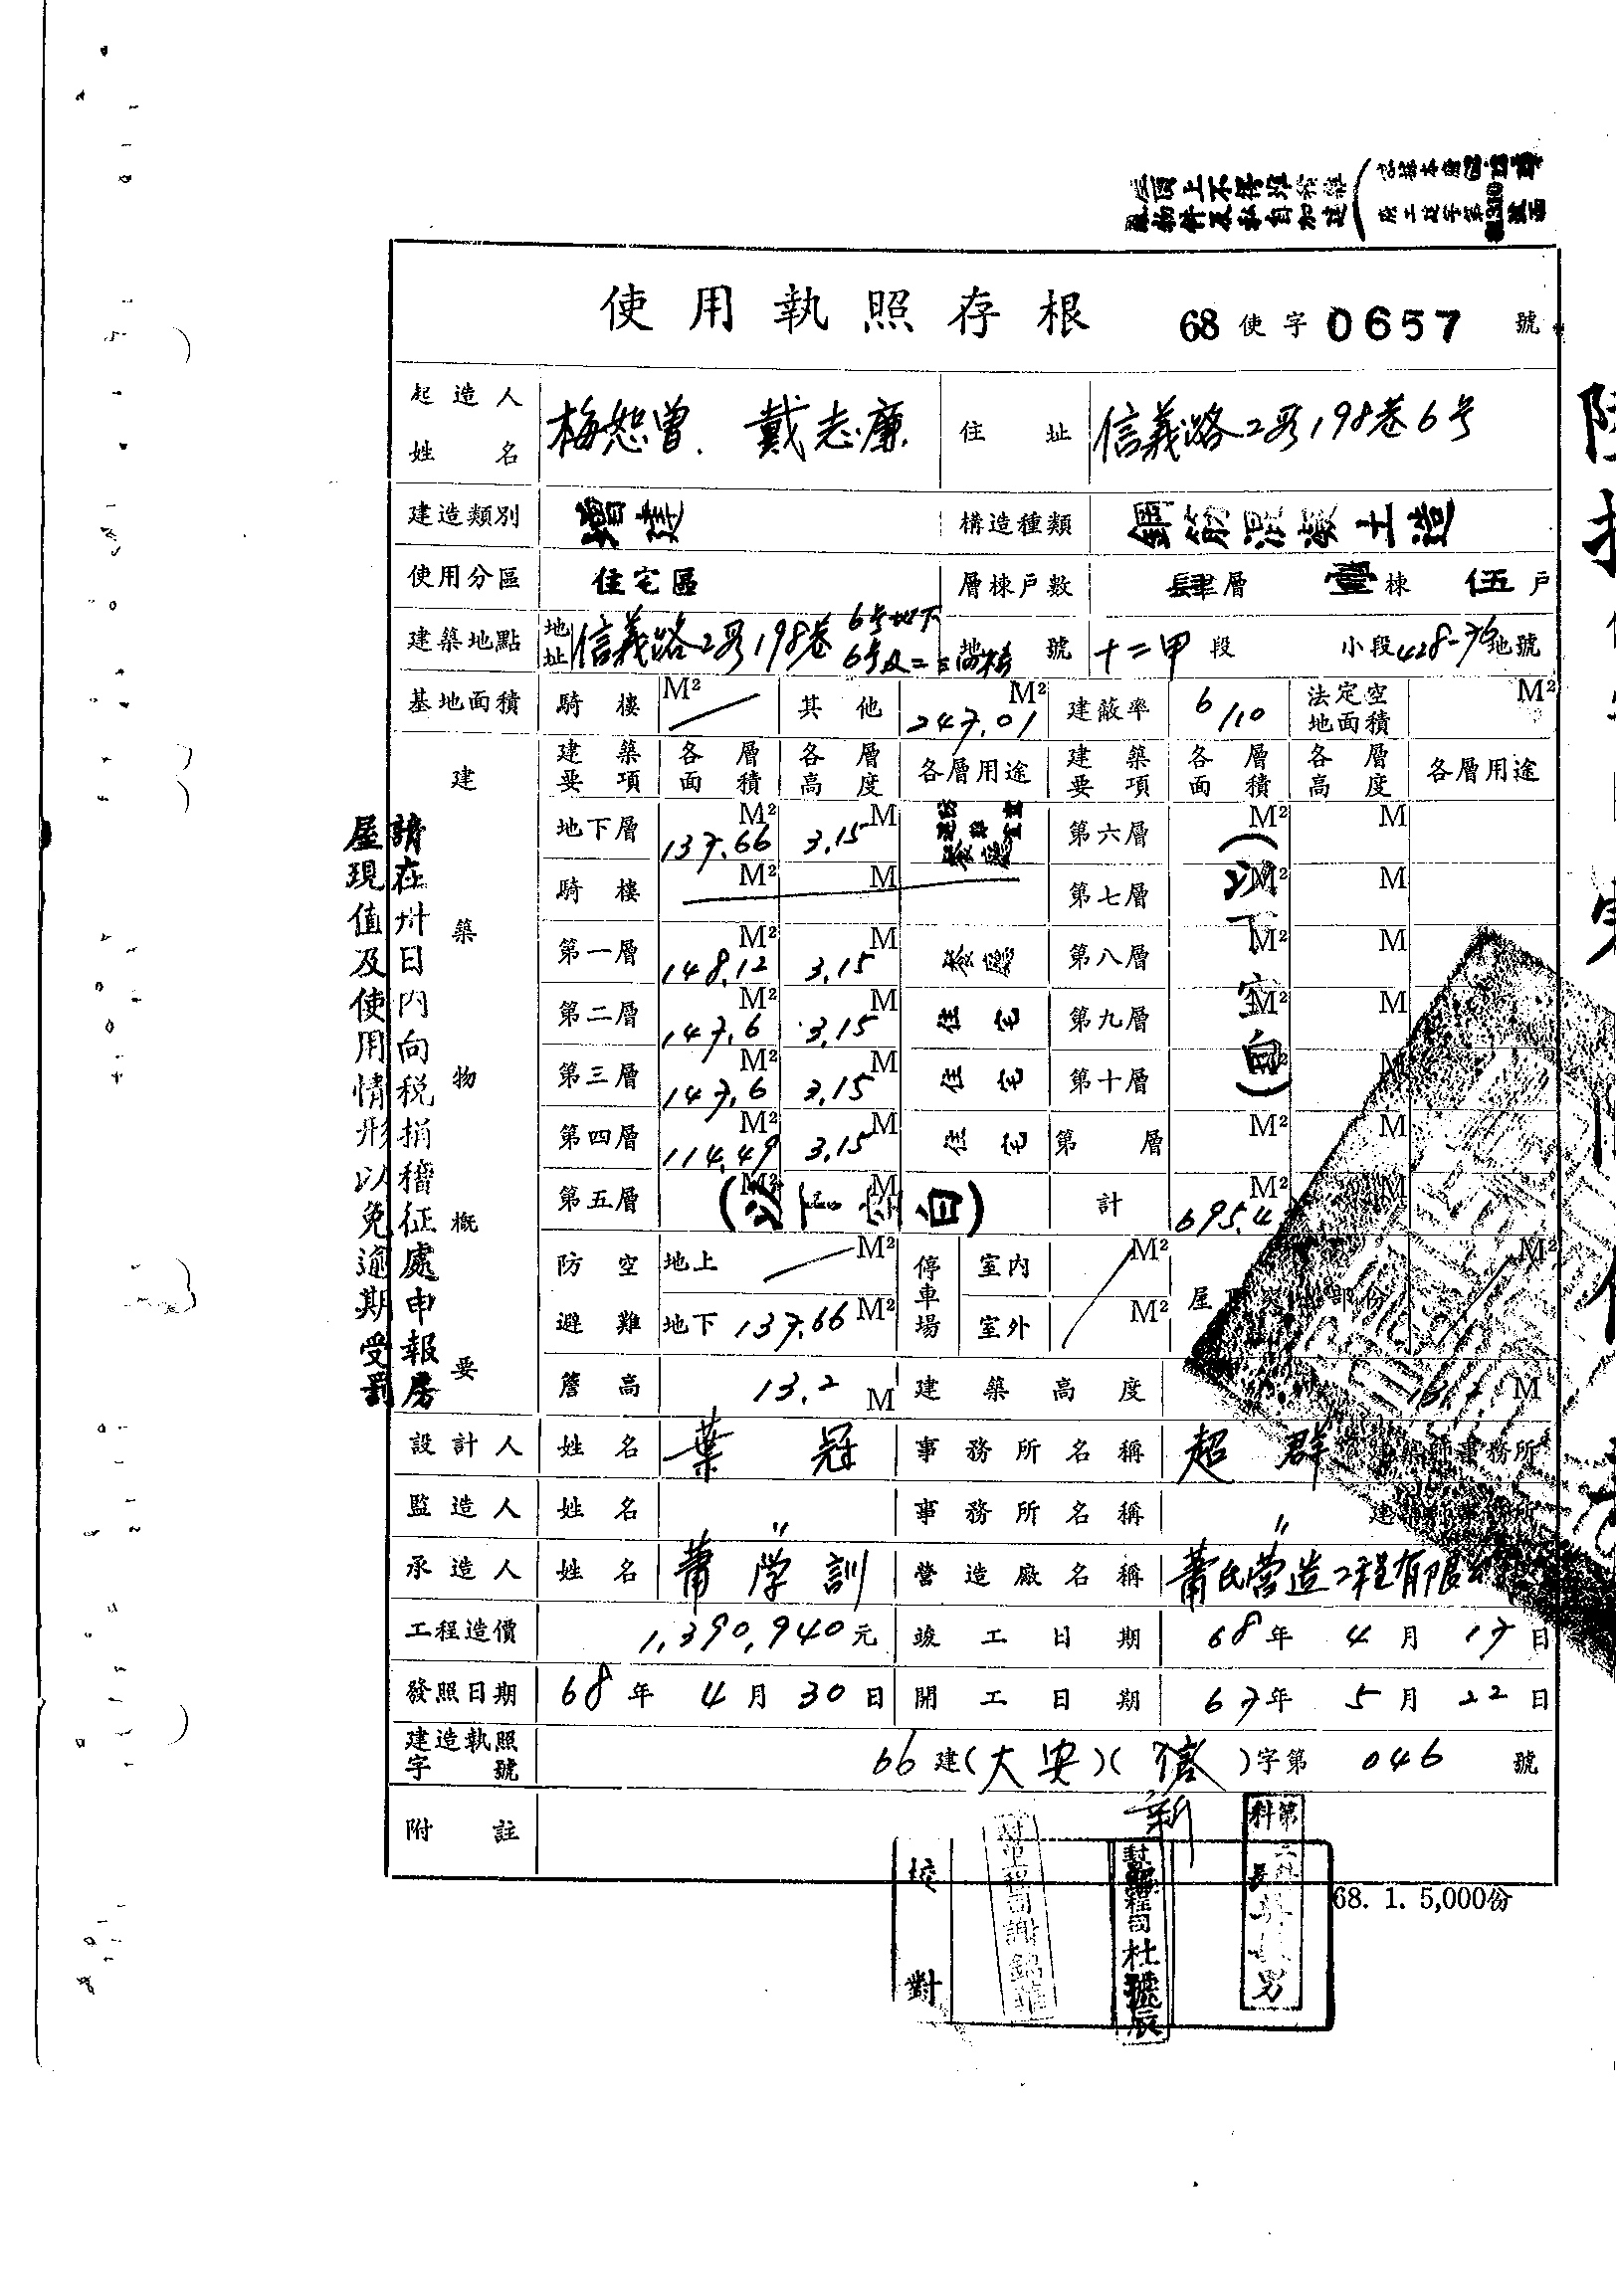 使用執照存根 68使字0657號
起造人姓名 梅恕曾、戴志廉 住址 信義路2段198巷6号
建造類別 增建 構造種類 鋼筋混凝土造
使用分區 住宅區 層棟戶數 肆層 壹棟 伍戶
建築地點 地址 信義路2段198巷 6号地下 6号及二三四樓 地號 十二甲段 小段428-76地號
基地面積 騎樓 M² 其他 247.01 M² 建蔽率 6/10 法定空地面積 M²
建築物概要
建築要項 各層面積 各層高度 各層用途 建築要項 各層面積 各層高度 各層用途
地下層 137.66 M² 3.15 M 第六層 M² M
騎樓 M² M 第七層 M² M
第一層 148.12 M² 3.15 M 第八層 M² M
第二層 147.6 M² 3.15 M 住宅 第九層 M² M
第三層 147.6 M² 3.15 M 住宅 第十層 M² M
第四層 114.49 M² 3.15 M 住宅 第 層 M² M
第五層 M² M (以下空白) 計 695.4 M² M
(以下空白)
防空避難 地上 M² 地下 137.66 M² 停車場 室內 M² 室外 M² M²
簷高 13.2 M 建築高度 M
設計人 姓名 葉冠 事務所名稱 超群 建築師事務所
監造人 姓名 〃 事務所名稱 〃
承造人 姓名 蕭学訓 營造廠名稱 蕭氏营造工程有限公
工程造價 1,390,940元 竣工日期 68年4月17日
發照日期 68年4月30日 開工日期 67年5月22日
建造執照字號 66建(大安)(信)字第046號
新
附註
請在卅日內向稅捐稽征處申報房
屋現值及使用情形以免逾期受罰
校對
68. 1. 5,000份